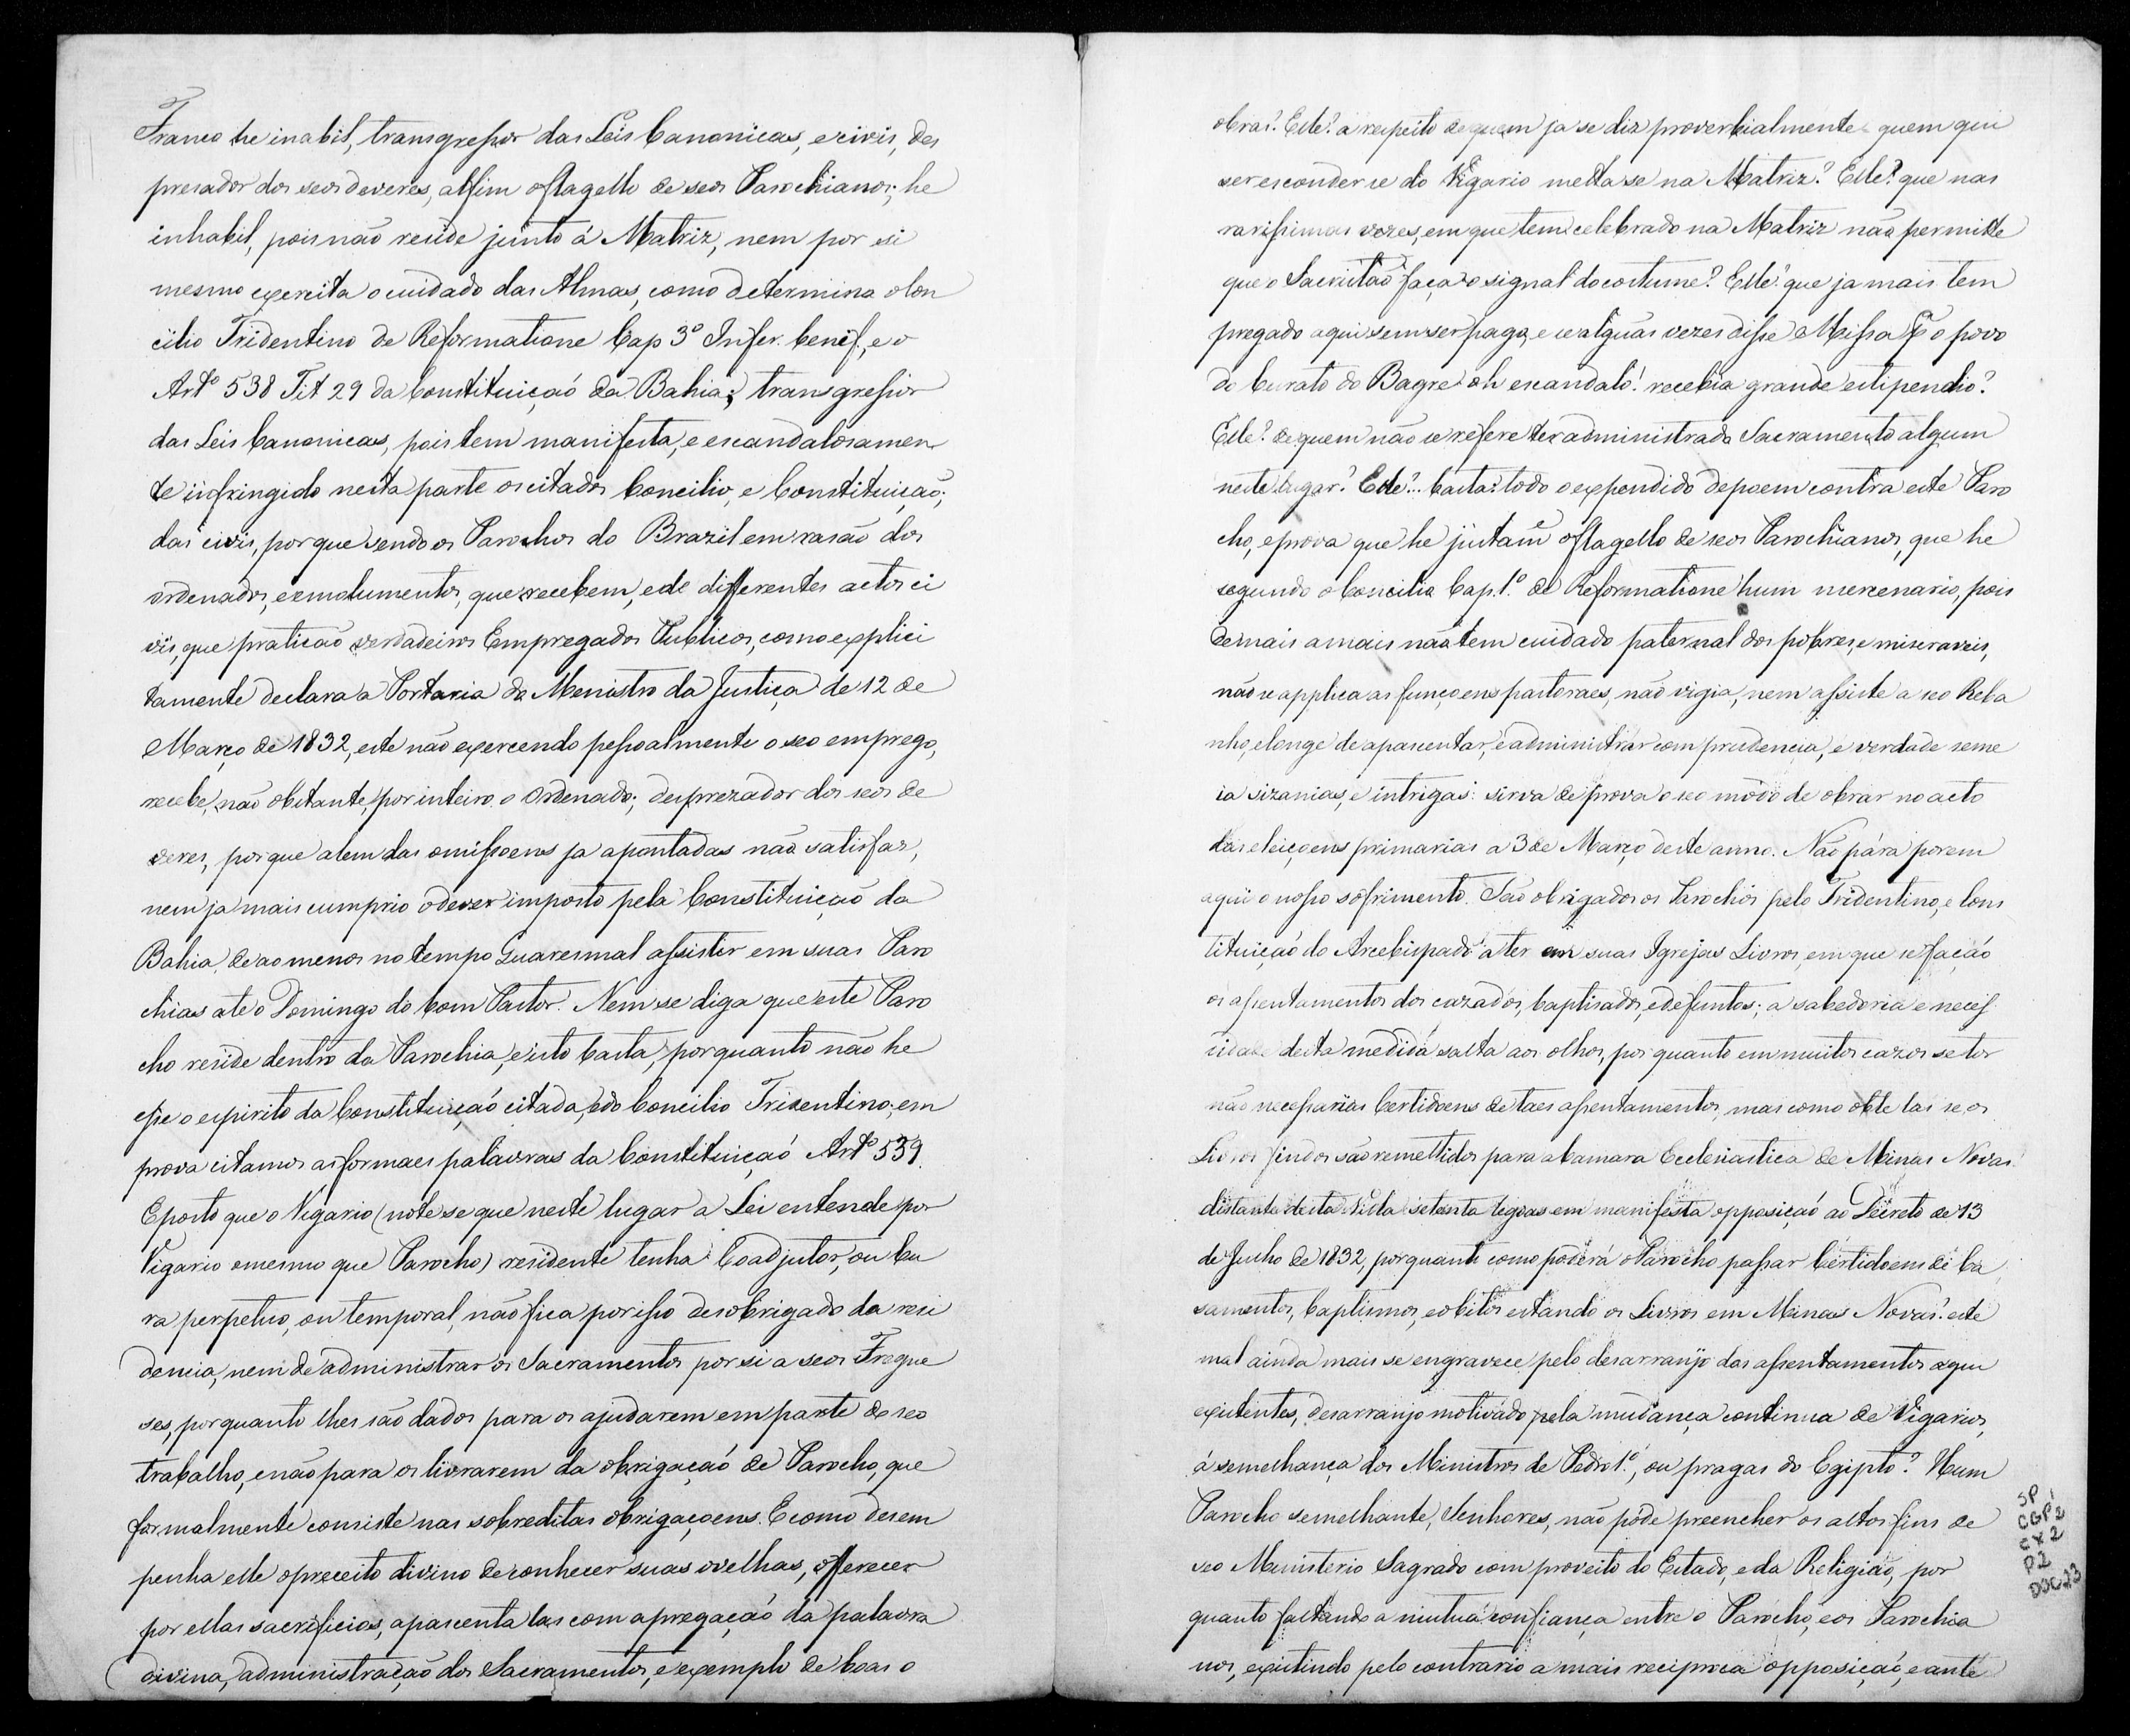 Franco he inabil, transgressor das Leis Canonicas, e civis, des
presador dos seos deveres, alfim o flagello de seos Parochianos; he
inhabil, pois não reside junto á Matriz, nem por si
mesmo exercita o cuidado das Almas, como determina o Con
cilio Tridentino de Reformatione Cap 3º Infer. benef., e o
Artº 538 Tit 29 da Constituiçaó da Bahia; transgressor
das Leis Canonicas, pois tem manifesta, e escandalosamen
te infringido nesta parte os citados Concilio, e Constituiçaó;
das civis, porque sendo os Parochos do Brazil em rasão dos
ordenados, e emolumentos, que recebem, e de differentes actos ci
vis, que praticão verdadeiros Empregados Publicos, como explici
tamente declara a Portaria do Menistro da Justiça de 12 de
Março de 1832, este não exercendo pessoalmente o seo emprego,
recebe, não obstante, por inteiro o Ordenado; desprezador dos seos de
veres, porque alem das omissoens ja apontadas não satisfaz,
nem ja mais cumprio o dever imposto pela Constituição da
Bahia, de ao menos no tempo Quaresmal assistir em suas Paro
chias ate o Domingo do bom Pastor. Nem se diga que este Paro
cho reside dentro da Parochia, e isto basta, porquanto não he
esse o espirito da Constituiçaó citada, e do Concilio Tridentino; em
prova citamos as formaes palavras da Constituiçaó Artº 539.
E posto que o Vigario (note se que neste lugar a Lei entende por
Vigario o mesmo que Parocho) residente tenha Coadjutor, ou Cu
ra perpetuo, ou temporal, não fica por isso desobrigado da resi
dencia, nem de administrar os Sacramentos por si a seos Fregue
ses, porquanto lhes são dados para os ajudarem em parte do seo
trabalho, e não para os livrarem da obrigaçaó de Parocho, que
formalmente consiste nas sobreditas obrigaçoens. E como desem
penha elle o preceito divino de conhecer suas ovelhas, offerecer
por ellas sacrificios, apascenta las com a pregaçaó da palavra
divina, administração dos Sacramentos, e exemplo de boas o
obras? Este? a respeito de quem ja se diz proverbialmente quem qui
ser esconder se do Vigario metta se na Matriz? Este? que nas
rarissimas vezes, em que tem celebrado na Matriz não permitte
que o Sacristão faça o signal do costume? Este? que ja mais tem
pregado aqui sem ser pago, e se alguãs vezes disse Missa pª o povo
do Curato do Bagre oh escandalo! recebia grande estipendio?
Este? de quem não se refere ter administrado Sacramento algum
neste lugar? Este?.. basta: todo o expendido depoem contra este Paro
cho, e prova que he justamẽ o flagello de seos Parochianos, que he
segundo o Concilio Cap. 1.º de Reformatione hum mercenario, pois
de mais a mais não tem cuidado paternal dos pobres, e miseraveis,
não se applica as funçoens pastoraes, não vigia, nem assiste a seo Reba
nho, e longe de apascentar, e administrar com prudencia, e verdade seme
ia sizanias, e intrigas: sirva de prova o seo modo de obrar no acto
das eleiçoens primarias a 3 de Março deste anno. Não pára porem
aqui o nosso sofrimento. São obrigados os Parochos pelo Tridentino, e Cons
tituiçaó do Arcebispado a ter em suas Igrejas Livros, em que se façaó
os assentamentos dos cazados, baptisados, e defuntos; a sabedoria e neces
cidade desta medida salta aos olhos, por quanto em muitos cazos se tor
não necessarias Certidoens de taes assentamentos, mas como obte las se os
Livros findos são remettidos para a Camara Ecclesiastica de Minas Novas
distante desta Villa setenta legoas em manifesta opposiçaó ao Decreto de 13
de Julho de 1832, porquanto como poderá o Parocho passar Certidoens de Ca
samentos, baptismos, e obitos estando os Livros em Minas Novas? este
mal ainda mais se engravece pelo desarranjo dos assentamentos aqui
existentes, desarranjo motivado pela mudança continua de Vigarios,
á semelhança dos Ministros de Pedro 1.º, ou pragas do Egipto? Hum
Parocho semelhante, Senhores, não póde preencher os altos fins de
seo Ministerio Sagrado com proveito do Estado, e da Religião, por
quanto faltando a mutua confiança entre o Parocho, e os Parochia
nos, existindo pelo contrario a mais reciproca opposiçaó, e ante
SP
CGP2
CX2
P2
DOC23